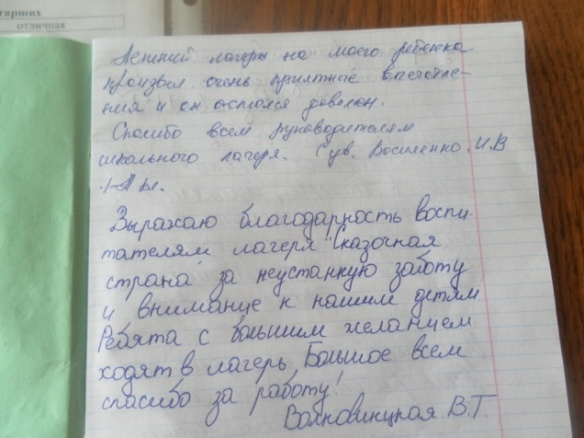 старших
отличная
Летний лагерь на моего ребенка
произвел очень приятные впечатле-
ния и он остался доволен.
Спасибо всем руководителям
школьного лагеря. С ув. Василенко И.В
1-А кл.
Выражаю благодарность воспи-
тателям лагеря "Сказочная
страна за неустанную заботу
и внимание к нашим детям
Ребята с большим желанием
ходят в лагерь. Большое всем
спасибо за работу!
В.Т.